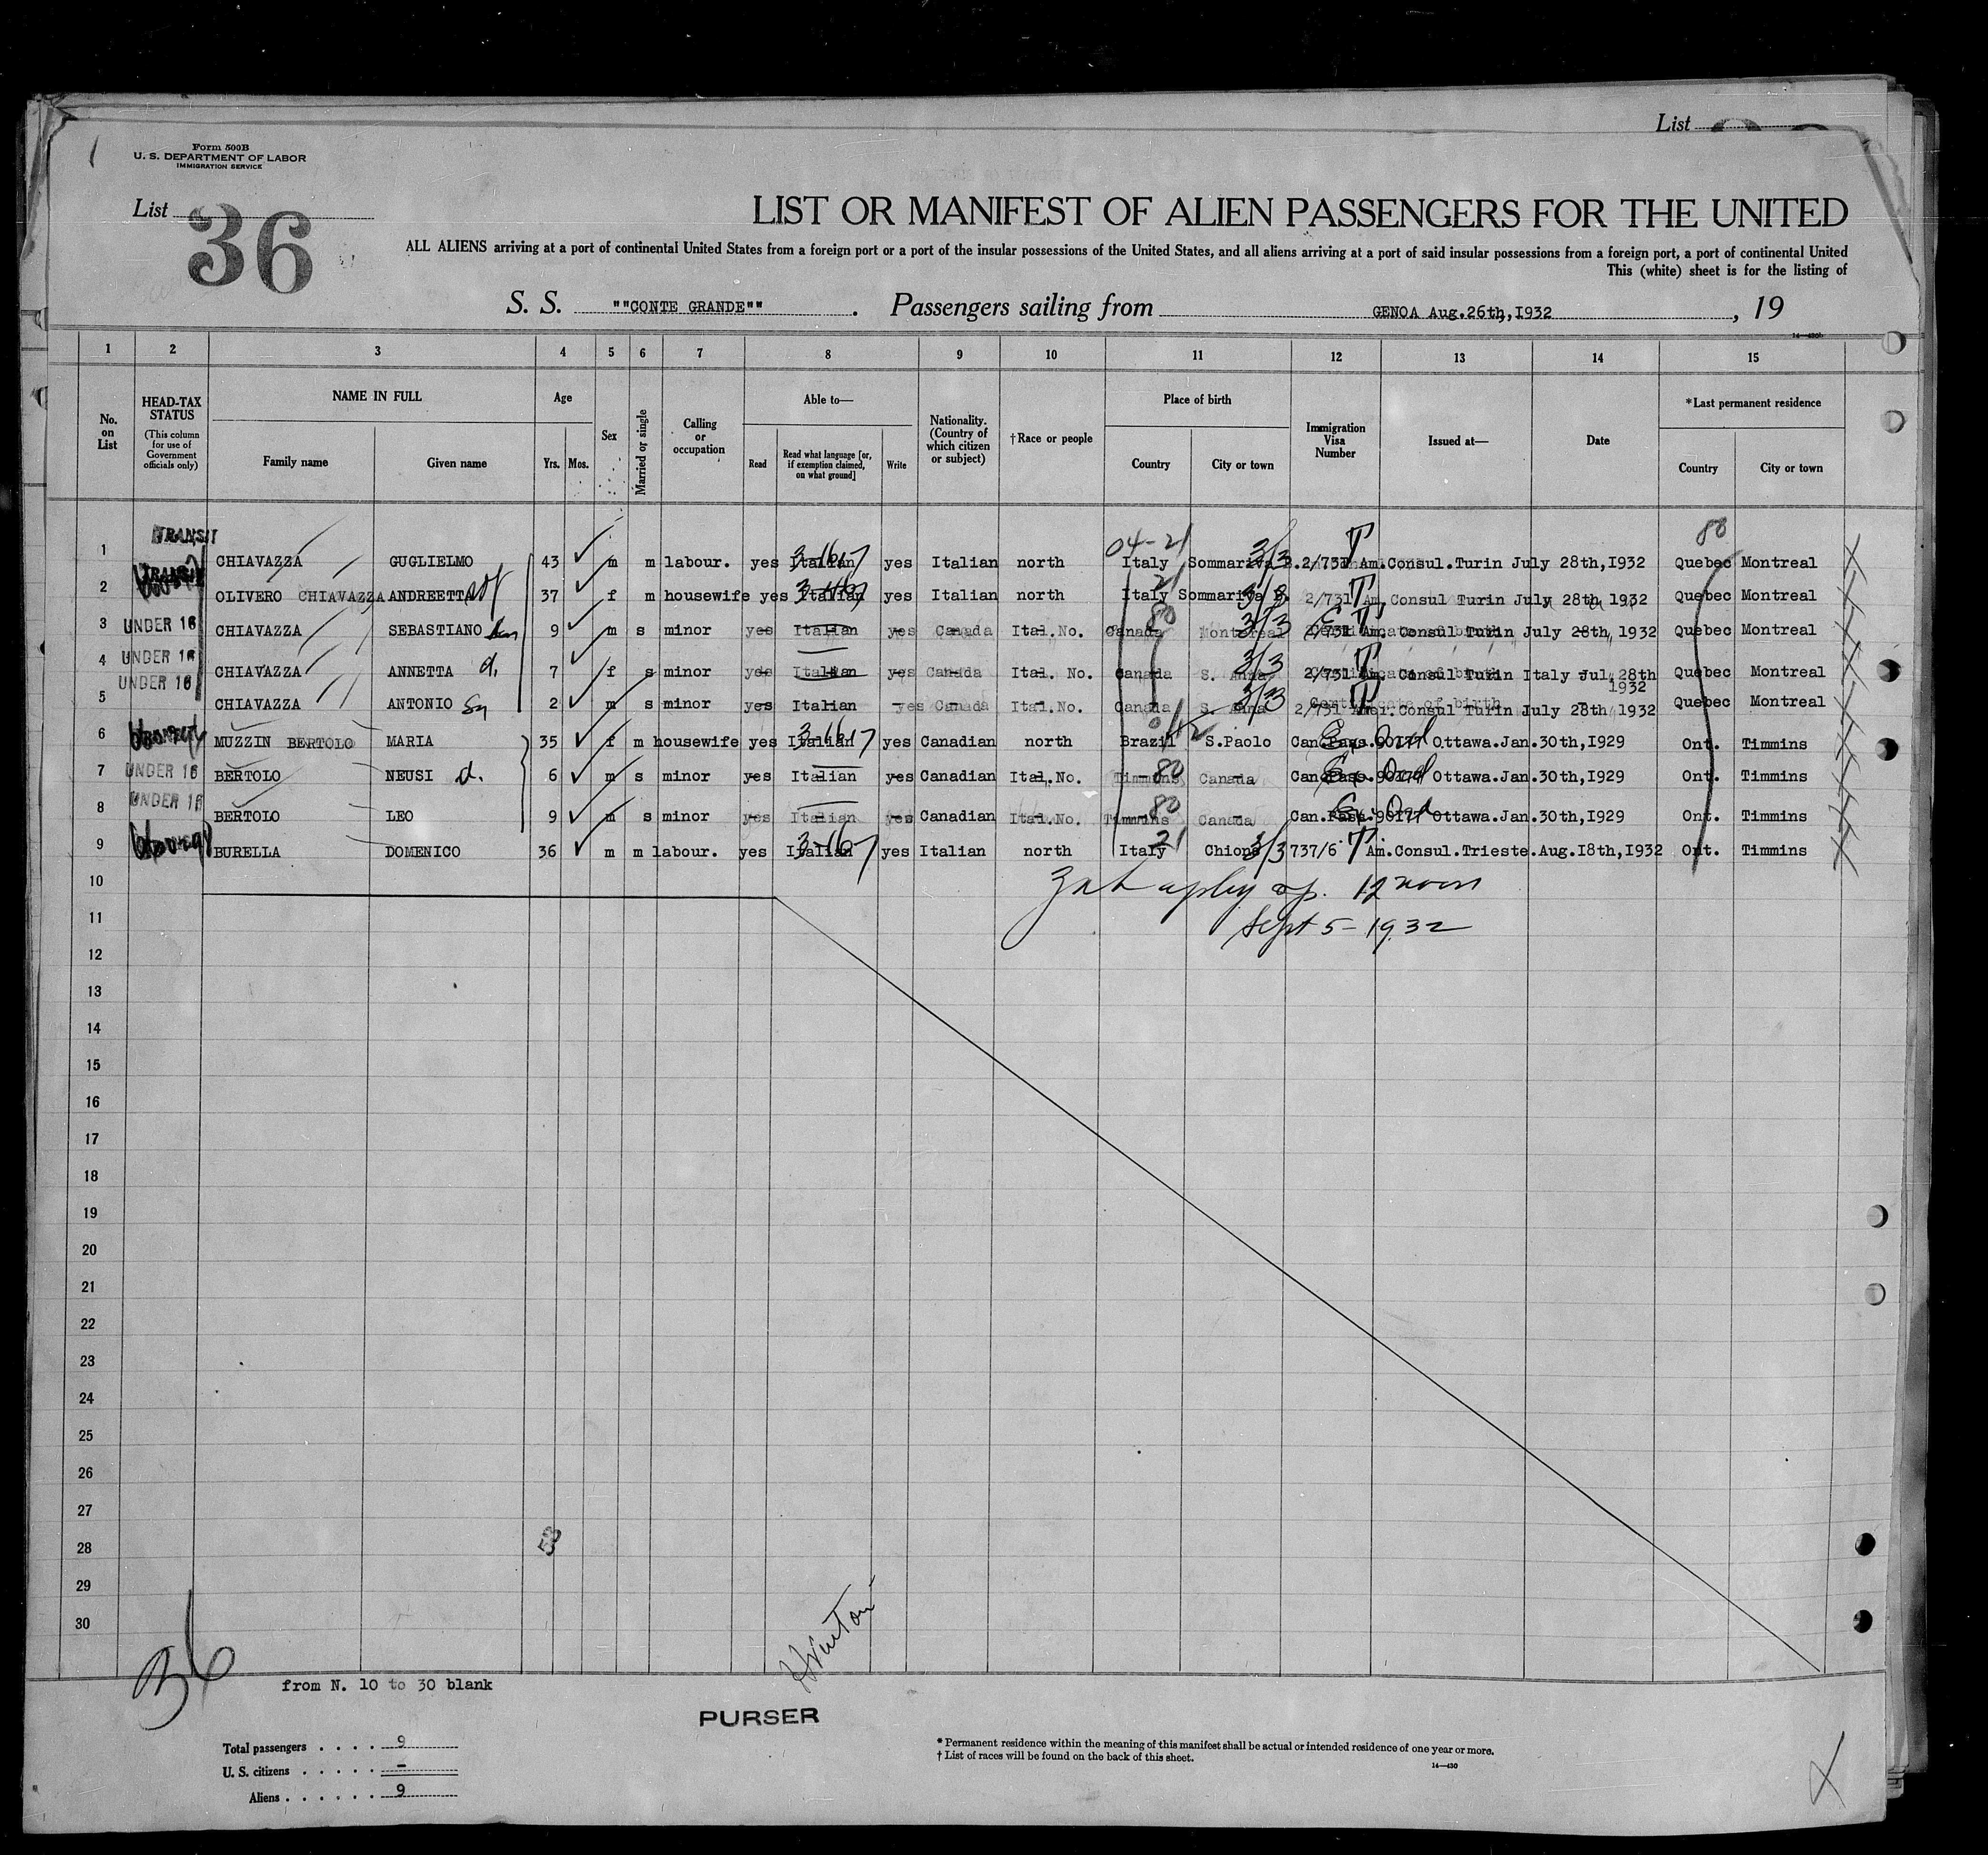 List
Form 500B
U. S. DEPARTMENT OF LABOR
IMMIGRATION SERVICE
List 36
LIST OR MANIFEST OF ALIEN PASSENGERS FOR THE UNITED
ALL ALIENS arriving at a port of continental United States from a foreign port or a port of the insular possessions of the United States, and all aliens arriving at a port of said insular possessions from a foreign port, a port of continental United
This (white) sheet is for the listing of
S. S. ""CONTE GRANDE"" . Passengers sailing from GENOA Aug.26th,I932 , 19
1 2 3 4 5 6 7 8 9 10 11 12 13 14 15
No. on List
HEAD-TAX STATUS
(This column for use of Government officials only)
NAME IN FULL
Family name Given name
Age
Yrs. Mos.
Sex
Married or single
Calling or occupation
Able to—
Read
Read what language [or, if exemption claimed, on what ground]
Write
Nationality. (Country of which citizen or subject)
†Race or people
Place of birth
Country City or town
Immigration Visa Number
Issued at—
Date
*Last permanent residence
Country City or town
TRANSIT 04-21 80
1 CHIAVAZZA GUGLIELMO 43 m m labour. yes Italian yes Italian north Italy Sommariva B. 2/731 Am.Consul.Turin July 28th,I932 Quebec Montreal
2 OLIVERO CHIAVAZZA ANDREETTA 37 f m housewife yes Italian yes Italian north Italy Sommariva B. 2/731 Am Consul Turin July 28th 1932 Quebec Montreal
3 UNDER 16 CHIAVAZZA SEBASTIANO 9 m s minor yes Italian yes Canada Ital.No. Canada Montereal 2/731 Am. Consul Turin July 28th, 1932 Quebec Montreal
4 UNDER 16 CHIAVAZZA ANNETTA d. 7 f s minor yes Italian yes Canada Ital. No. Canada S. Anna 2/731 Am. Consul Turin Italy Jul,28th 1932 Quebec Montreal
5 UNDER 16 CHIAVAZZA ANTONIO 2 m s minor yes Italian yes Canada Ital.No. Canada S. Anna 2/731 Amer. Consul Turin July 28th 1932 Quebec Montreal
6 MUZZIN BERTOLO MARIA 35 f m housewife yes Italian yes Canadian north Brazil S.Paolo Can.Pass. Ottawa.Jan.30th,I929 Ont. Timmins
7 UNDER 16 BERTOLO NEUSI d. 6 m s minor yes Italian yes Canadian Ital.No. Timmins Canada Can.Pass. Ottawa.Jan.30th,I929 Ont. Timmins
8 UNDER 16 BERTOLO LEO 9 m s minor yes Italian yes Canadian Ital.No. Timmins Canada Can.Pass. Ottawa.Jan.30th,I929 Ont. Timmins
9 BURELLA DOMENICO 36 m m labour. yes Italian yes Italian north Italy 737/6 Am.Consul.Trieste.Aug.I8th,I932 Ont. Timmins
10 12 noon
11 Sept 5-1932
12
13
14
15
16
17
18
19
20
21
22
23
24
25
26
27
28 53
29
30
36
from N. 10 to 30 blank
PURSER
Total passengers . . . . 9
U. S. citizens . . . . . –
Aliens . . . . . . 9
* Permanent residence within the meaning of this manifest shall be actual or intended residence of one year or more.
† List of races will be found on the back of this sheet.
14—430